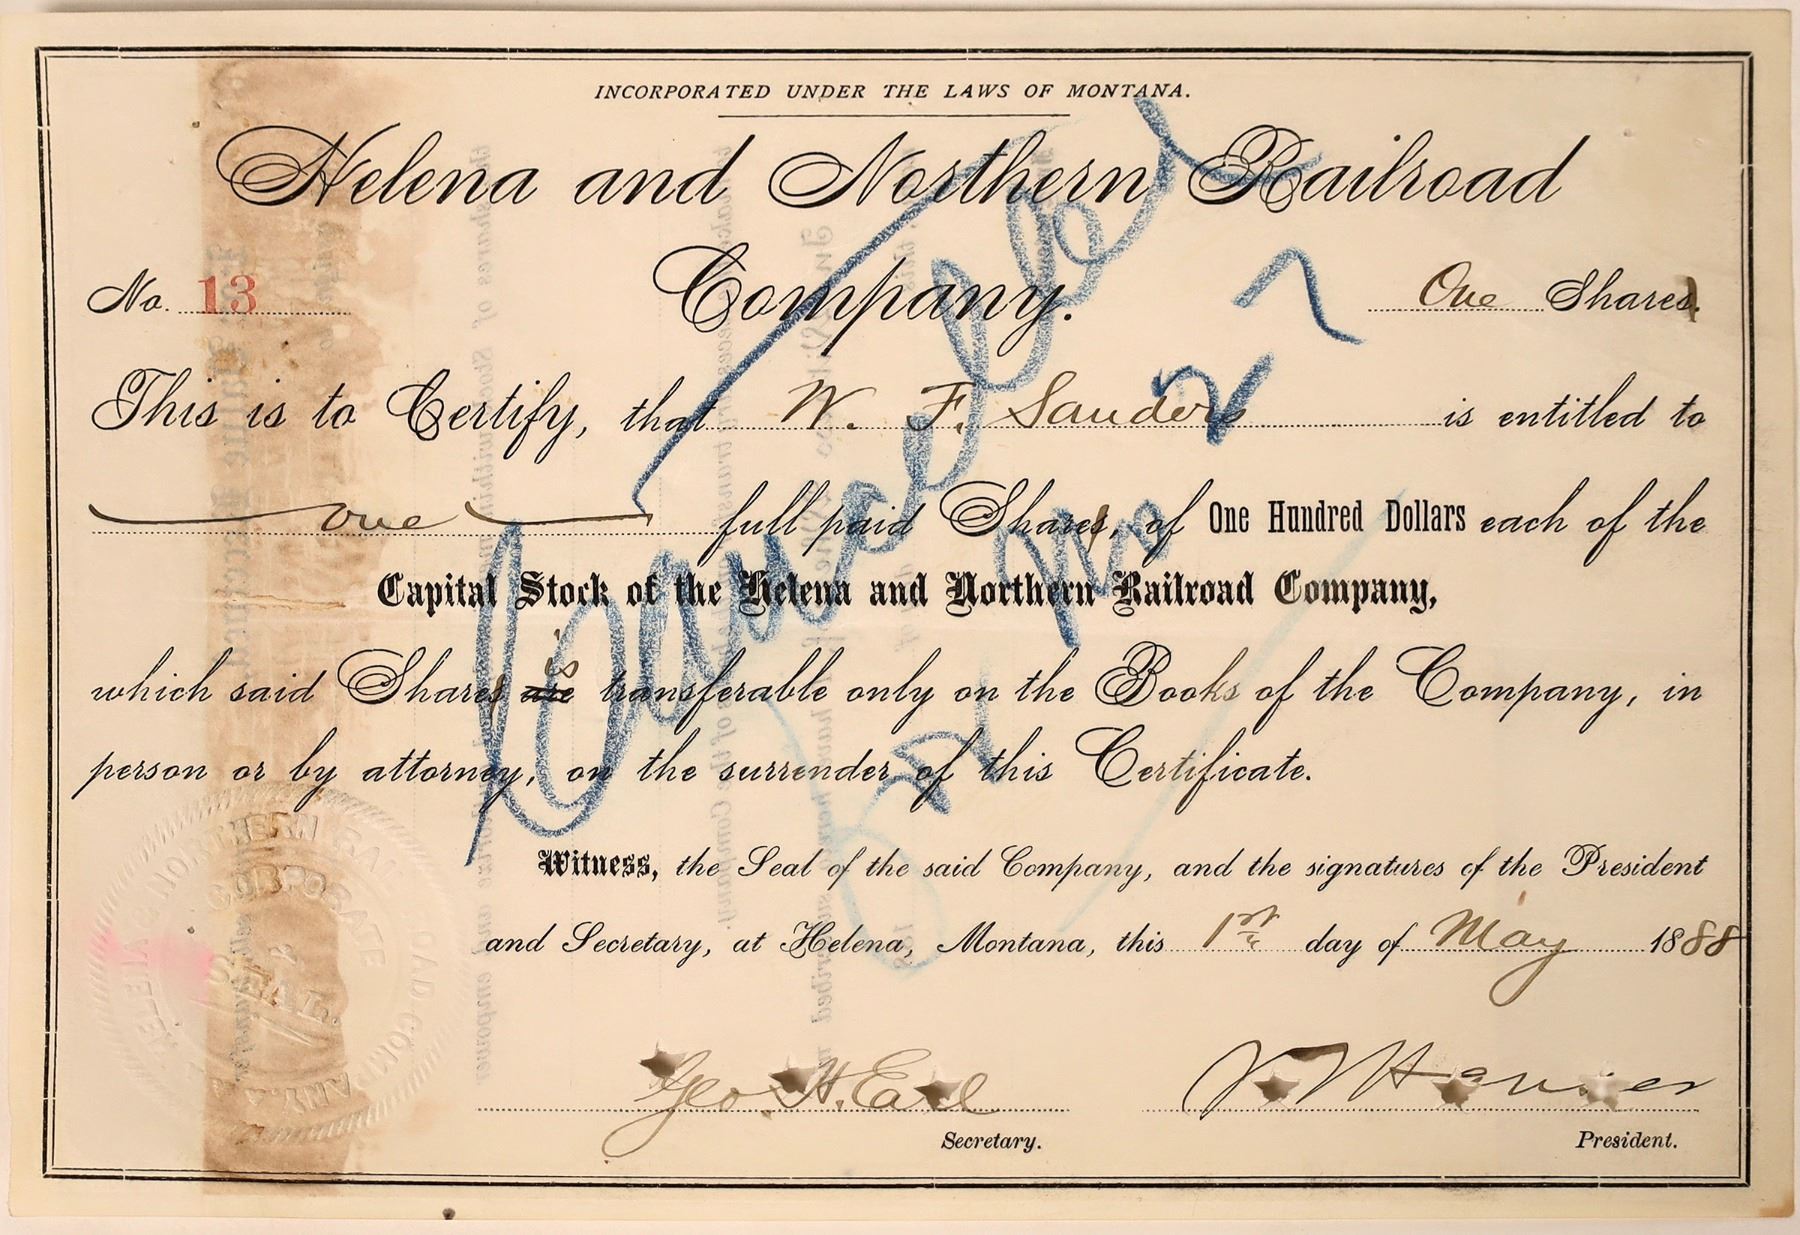 INCORPORATED UNDER THE LAWS OF MONTANA.
Helena and Northern Railroad
Company.
No. 13
One Shares.
This is to Certify, that W. F. Sanders is entitled to
one full paid Shares, of One Hundred Dollars each of the
Capital Stock of the Helena and Northern Railroad Company,
which said Shares are is transferable only on the Books of the Company, in
person or by attorney, on the surrender of this Certificate.
Witness, the Seal of the said Company, and the signatures of the President
and Secretary, at Helena, Montana, this 1st day of May 1888
Geo. H. Earl
Secretary.
President.
Cancelled
CORPORATE
SEAL.